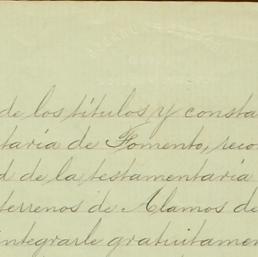 de los títulos y consta
taría de Fomento, reco
d de la testamentaría
terrenos de Alamos de
integrarle gratuitamen